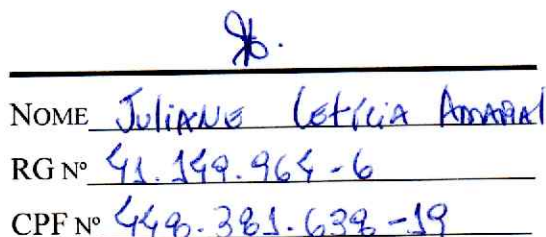 NOME Juliane Letícia Amaral
RG Nº 41.149.964-6
CPF Nº 448.381.638-19